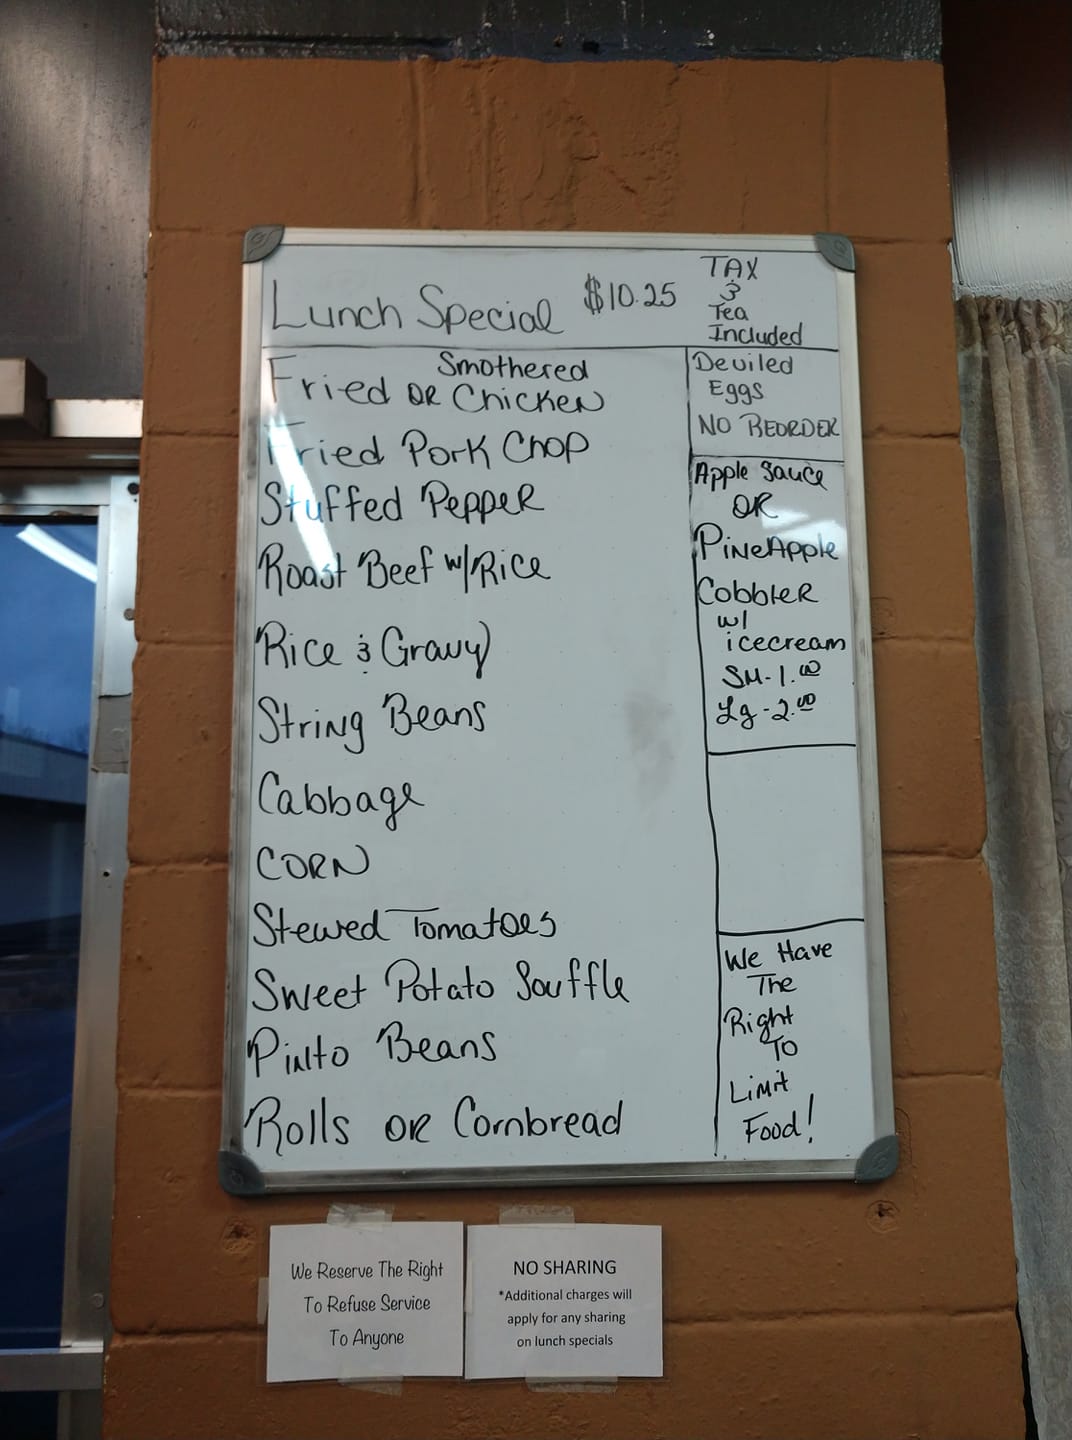 Lunch Special $10.25
TAX
&
Tea
Included
Smothered
Fried OR Chicken
Fried Pork Chop
Stuffed Pepper
Roast Beef w/Rice
Rice & Gravy
String Beans
Cabbage
CORN
Stewed Tomatoes
Sweet Potato Souffle
Pinto Beans
Rolls OR Cornbread
Deviled
Eggs
NO REORDER
Apple Sauce
OR
PineApple
Cobbler
w/
icecream
SM-1.00
Lg-2.00
We Have
The
Right
To
Limit
Food!
We Reserve The Right
To Refuse Service
To Anyone
NO SHARING
*Additional charges will
apply for any sharing
on lunch specials